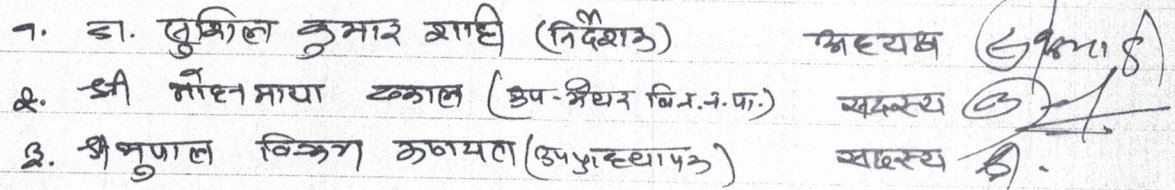 १. डा. सुशिल कुमार शाही (निर्देशक) अध्यक्ष
२. श्री मोहनमाया ढकाल (उप-मेयर बि.न.पा.) सदस्य
३. श्री भुपाल विक्रम कठायत (उपप्राध्यापक) सदस्य